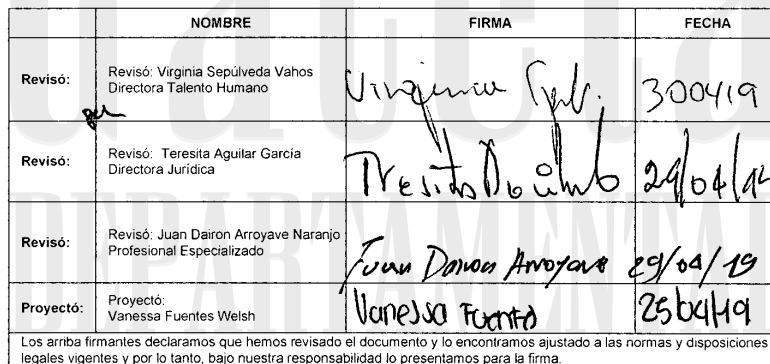 NOMBRE FIRMA FECHA
Revisó: Revisó: Virginia Sepúlveda Vahos
Directora Talento Humano
Virginia 300419
Revisó: Revisó: Teresita Aguilar García
Directora Jurídica
29/04/19
Revisó: Revisó: Juan Dairon Arroyave Naranjo
Profesional Especializado
Juan Dairon Arroyave 29/04/19
Proyectó: Proyectó:
Vanessa Fuentes Welsh
Vanessa Fuentes 25/04/19
Los arriba firmantes declaramos que hemos revisado el documento y lo encontramos ajustado a las normas y disposiciones
legales vigentes y por lo tanto, bajo nuestra responsabilidad lo presentamos para la firma.
DEPARTAMENTAL